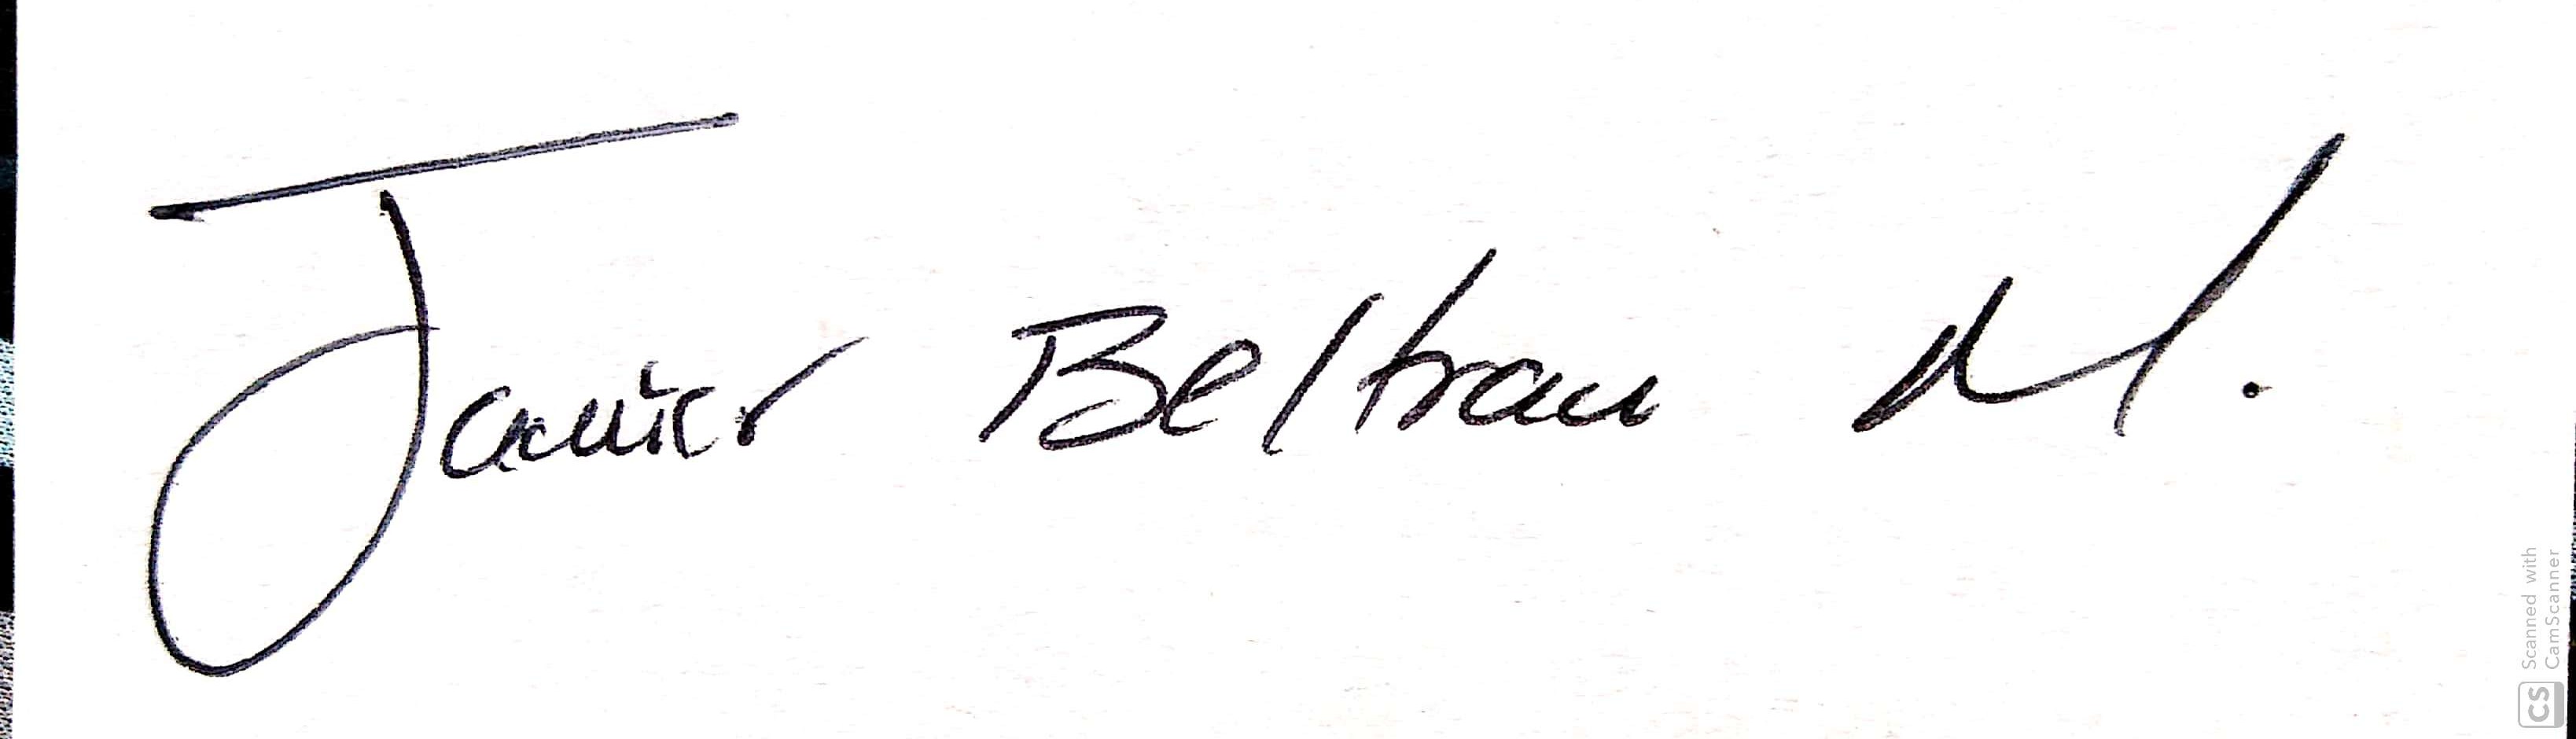 Javier Beltran M.
Scanned with
CamScanner
CS